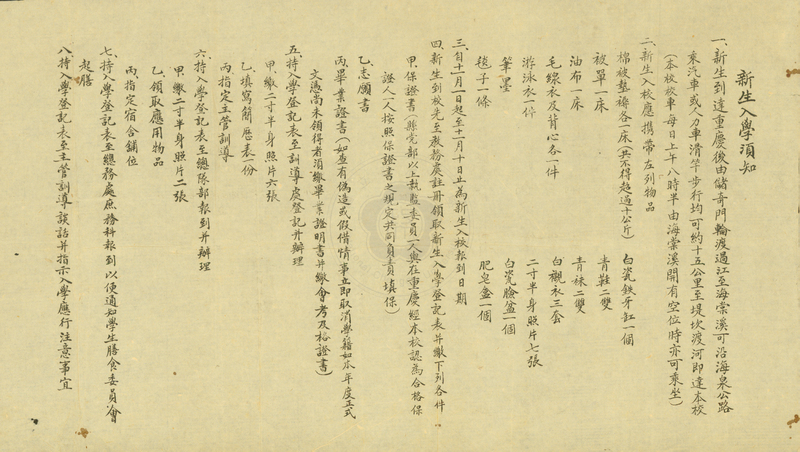 新生入學須知
一、新生到達重慶後由儲奇門輪渡過江至海棠溪可沿海泉公路
乘汽車或人力車滑竿步行均可約十五公里至堤坎渡河即達本校
(本校校車每日上午八時半由海棠溪開有空位時亦可乘坐)
二、新生入校應携帶左列物品
棉被墊褥各一床(共不得超過十公斤) 白瓷鉄牙缸一個
被單一床 青鞋二雙
油布一床 青袜二雙
毛線衣及背心各一件 白襯衣三套
游泳衣一件 二寸半身照片七張
筆墨 白瓷臉盆一個
毯子一條 肥皂盒一個
三、自十一月一日起至十一月十日止為新生入校報到日期
四、新生到校先至教務處註冊領取新生入學登記表并繳下列各件
甲、保證書(縣党部以上執監委員一人與在重慶經本校認為合格保
證人一人按照保證書之規定共同負責填保)
乙、志願書
丙、畢業證書(如查有偽造或假借情事立即取消學籍如本年度正式
文憑尚未領得者須繳畢業證明書并繳會考及格證書)
五、持入學登記表至訓導處登記并辦理
甲、繳二寸半身照片六張
乙、填寫簡歷表一份
丙、指定主管訓導
六、持入學登記表至總隊部報到并辦理
甲、繳二寸半身照片二張
乙、領取應用物品
丙、指定宿舍舖位
七、持入學登記表至總務處庶務科報到以便通知學生膳食委員會
起膳
八、持入學登記表至主管訓導談話并指示入學應行注意事宜